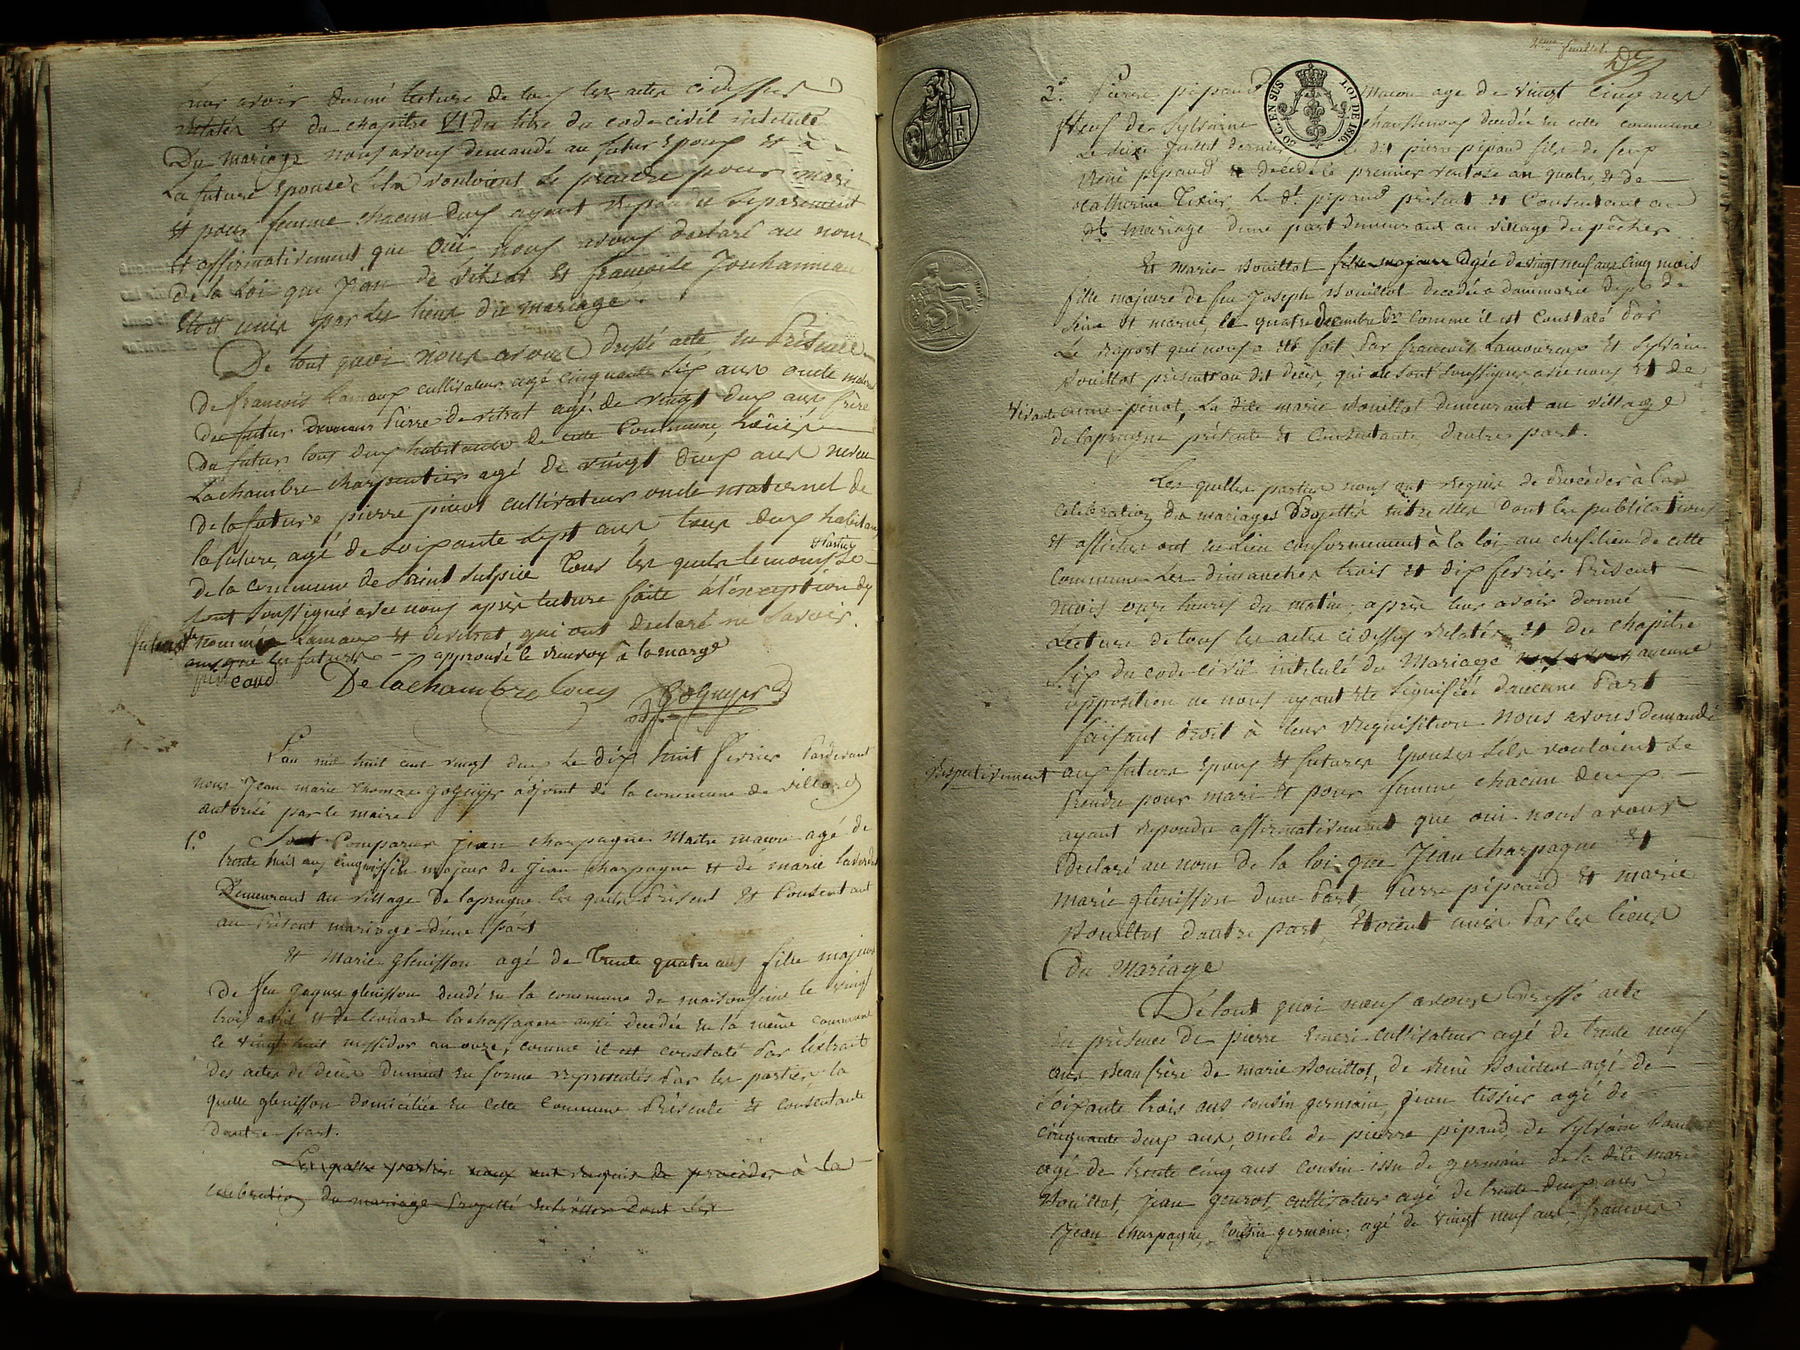 leur avoir donné lecture de tous les actes ci dessus
relatés et du chapitre VI du titre du code civil intitulé
Du mariage nous avons demandé au futur Epoux et à
La future Epouse s'ils vouloient se prendre pour mari
et pour femme chacun d'eux ayant répondu séparément
et affirmativement que oui nous avons déclaré au nom
de la Loi que Jean de Vitrat et françoise Jouhanneau
Etoit unis par les liens du mariage
De tout quoi nous avons dressé acte en Présence
De françois Lamoux cultivateur agé cinquante six ans oncle
du futur Pierre devitrat agé de vingt deux ans frère
Du futur tous deux habitants de cette Commune,
Lachambre charpentier agé de vingt deux ans neveu
De la future pierre pinot cultivateur oncle maternel de
la future, agé de soixante sept ans tous deux habitans
et parties
de la commune de Saint Sulpice Tous les quels temoins se
sont soussignés avec nous après lecture faite à l'éxception des
nommés Lamoux et devitrat qui ont declaré ne savoir.
ainsi que les futurs approuvé le renvoy à la marge
De Lachambre Goguyer
L'an mil huit cent vingt deux Le dix huit fevrier Pardevant
nous Jean marie thomas goguyer adjoint de la commune de villard
autorisé par le maire
1.o Sont Comparus jean charpagne Maitre macon agé de
trente huit ans cinq mois fils majeur de Jean charpagne et de marie
Demeurant au village de laprugne les quels Présent et Consentant
au Présent mariage d'une part
et Marie glenisson agé de Trente quatre ans fille majeure
De feu glenisson decedé en la commune de maisonfeine le vingt
trois avril et de leonarde lachassagne aussi decedée en la même commune
le vingt huit messidor an onze, comme il est constaté Par l'extrait
des actes de décès dument en forme representés Par les parties, la
quelle glenisson domiciliée en cette Commune Présente et consentante
d'autre part.
Les quelles parties nous ont requis de proceder à la
celebration du mariage Projetté entr'elles Dont les
2eme feuillet
2.o Pierre pipaud macon age de vingt cinq ans
Veuf de Sylvaine decedée en cette commune
Le dix Juillet dernier le dit pierre pipaud fils de feu
René pipaud decedé le premier Ventose an quatre, et de
Catherine Tixier, Le dt. pipaud présent et Consentent au
dt. mariage d'une part demeurant au village du pêcher
Et Marie Bouillot fille majeure Agée de vingt neuf ans cinq mois
fille majeure de feu Joseph Bouillot decedé a dammarie dept. de
Seine et marne, le quatre Decembre comme il est Constaté Par
Le raport qui nous a été fait Par françois Lamoureux et Sylvain
Bouillot présents au dit décès, qui se sont soussignés avec nous et de
vivante anne pinot, La dite marie Bouillot demeurant au village
de laprugne présente et Consentante, d'autre part.
Les quelles parties nous ont requis de Procéder à la
celebration du mariages Projettés entre elles dont les publications
et affiches ont eu lieu conformement à la loi au chef lieu de cette
Commune Les dimanches trois et dix fevrier Présent
mois onze heures du matin, après leur avoir donné
Lecture de tous les actes ci dessus relatés et du chapitre
Six du code civil intitulé du Mariage aucune
opposition ne nous ayant été signifiée d'aucune Part
faisant droit à leur réquisition nous avons demandé
respectivement aux futurs Epoux et futures Epouses s'ils vouloient se
Prendre pour mari et pour femme chacun deux
ayant repondu affirmativement que oui nous avons
Declaré au nom de la loi que Jean charpagne et
marie glenisson d'une Part, Pierre pipaud et marie
Bouillot d'autre part, Etoient unis Par les liens
du Mariage
De tout quoi nous avons Dressé acte
En présence de pierre Emeri Cultivateur agé de trente neuf
ans Beau frère de marie Bouillot, de René agé de
Soixante trois ans cousin germain, jean tissier agé de
cinquante deux ans, oncle de pierre pipaud, de Sylvain
agé de trente cinq ans cousin issu de germain de la dite marie
Bouillot, Jean cultivateur agé de trente deux ans
Jean charpagne, Cousin germain, agé de vingt neuf ans, françois
LOI DE 1816